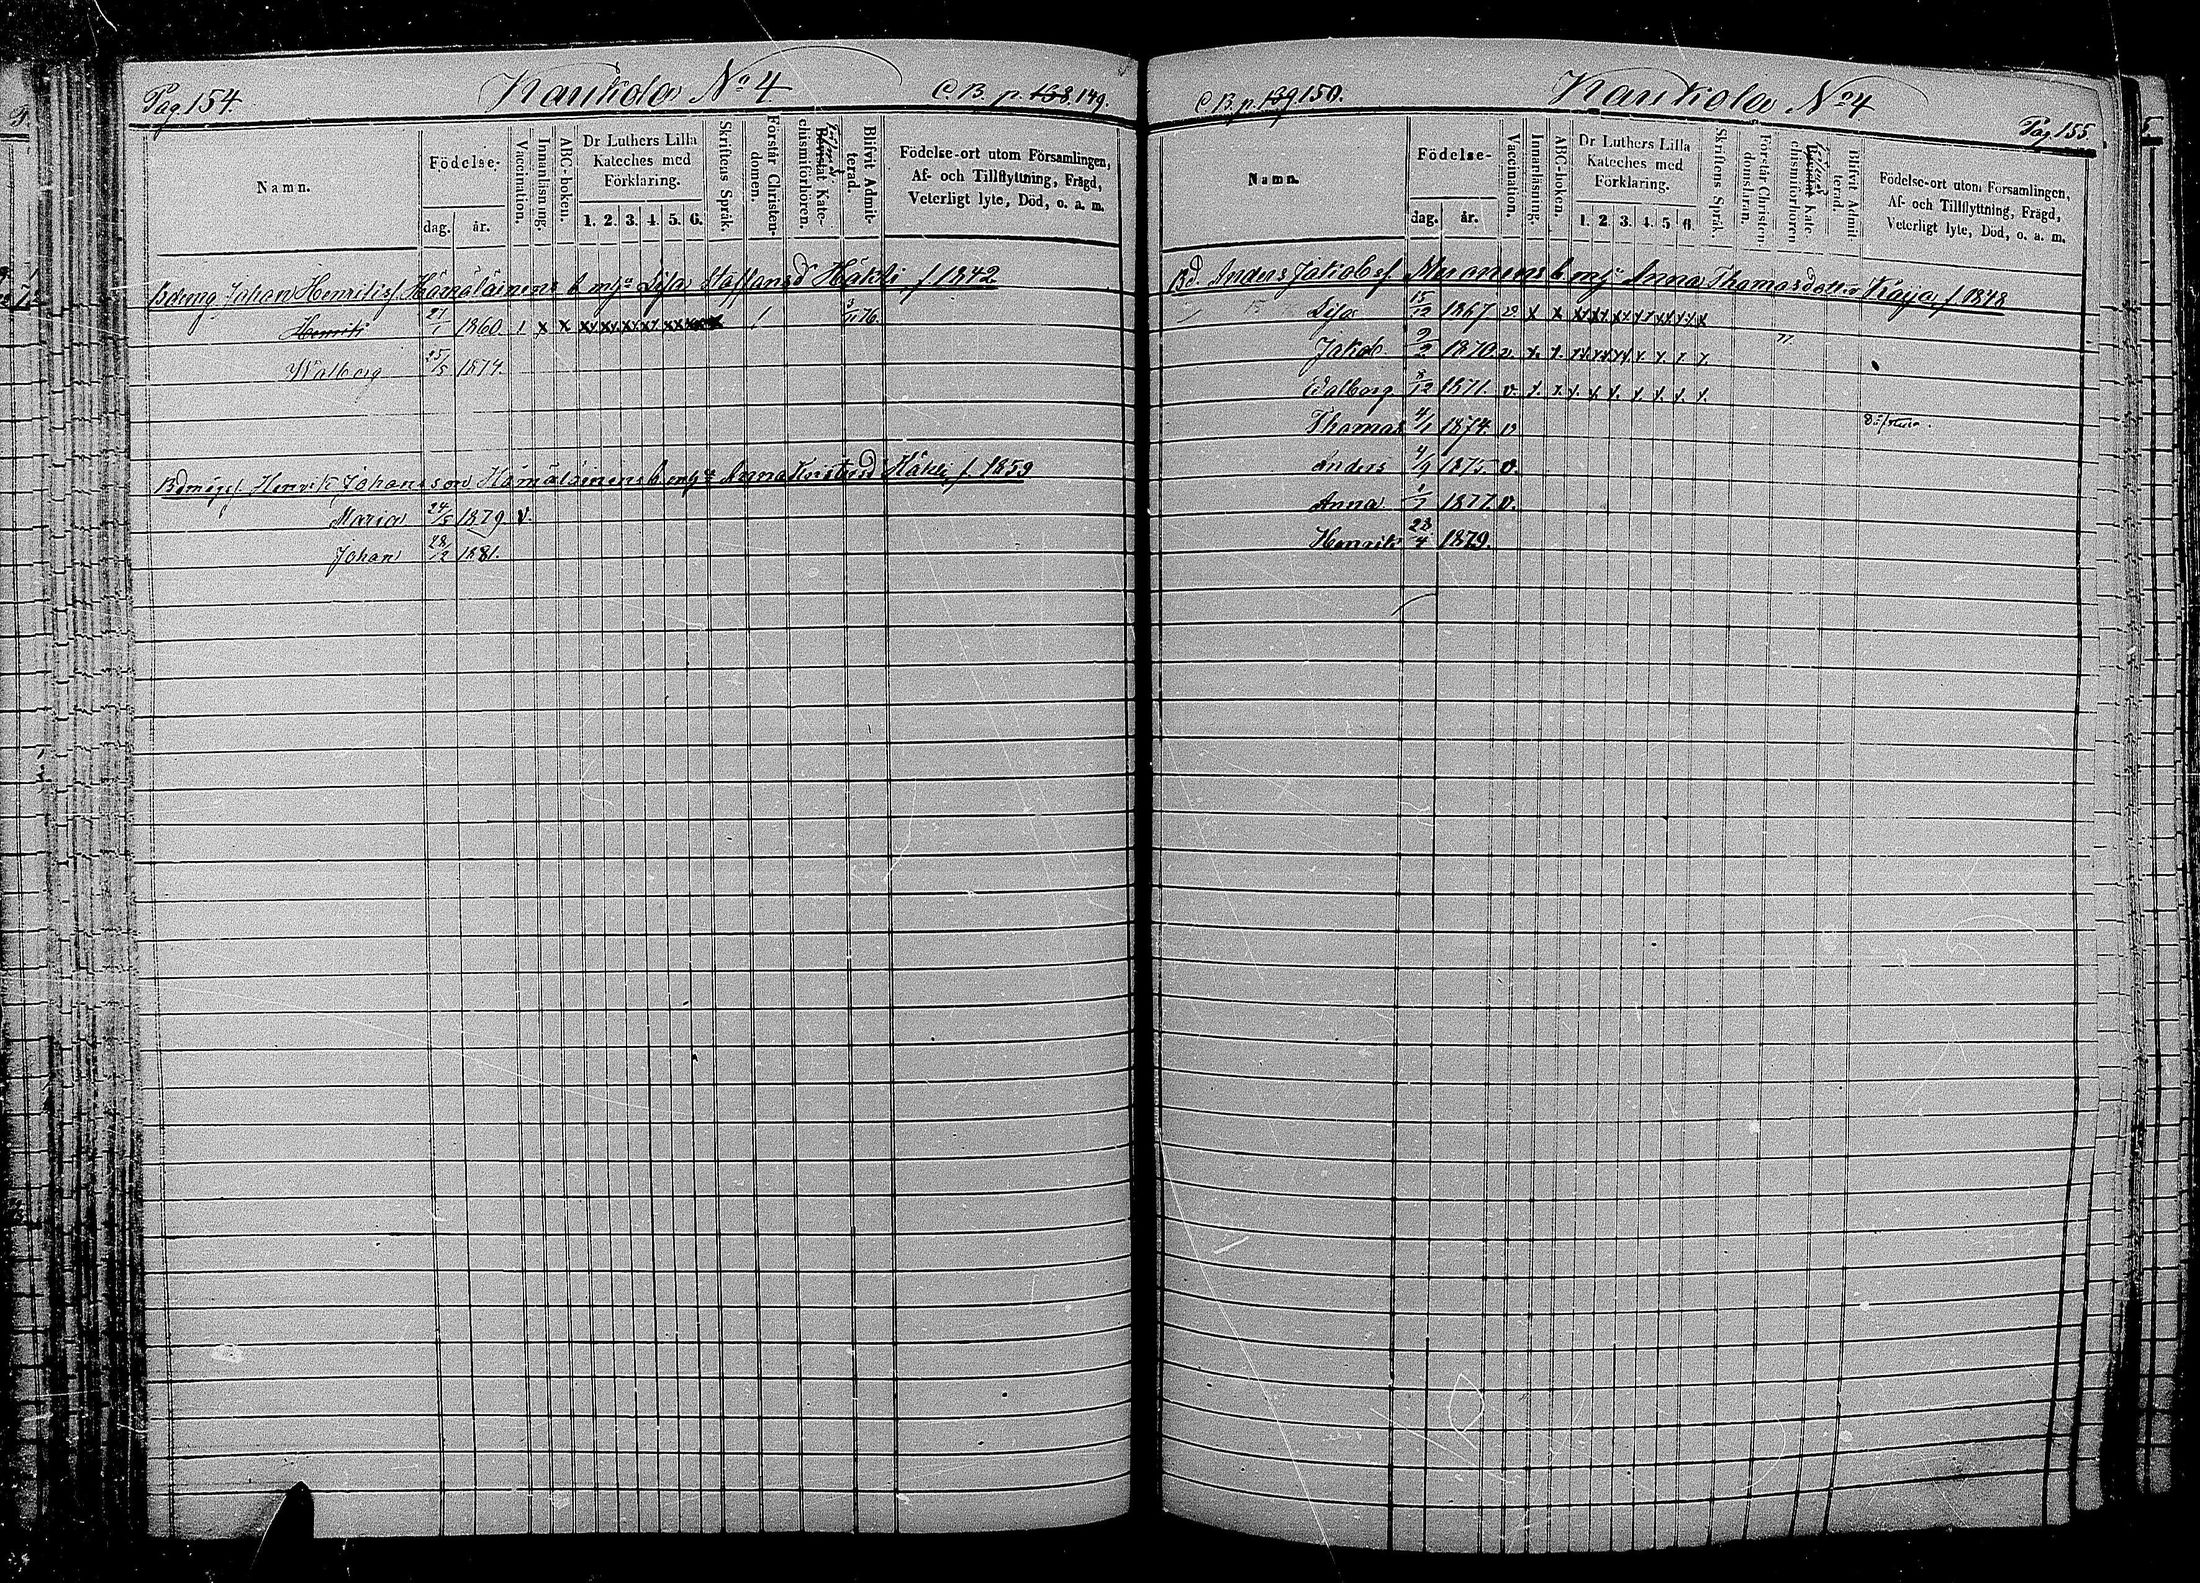 Pag 154.
Kaukola No 4
C. B. p. 138. 149.
Namn.
Födelse-
dag. år.
Vaccination.
Innanläsning.
ABC-boken.
Dr Luthers Lilla
Kateches med
Förklaring.
1. 2. 3. 4. 5. 6.
Skriftens Språk.
Förstår Christen-
domen.
Bevistat Kate-
chismiförhören.
Blifvit Admit-
terad.
Födelse-ort utom Församlingen,
Af- och Tillflyttning, Frägd,
Veterligt lyte, Död, o. a. m.
Johan Henrikss. Hämäläinens b. m. Lisa Staffansd Häkli f. 1842
Henrik 27/1 1860. 1 x x 76.
Walborg 25/5 1874.
Henrik Johansson Hämäläinens b. m. Anna Häkli f. 1859
Maria 24/5 1879 v.
Johan 28/12 1881.
C. B. p. 139 150.
Kaukola No 4
Pag 155
Namn.
Födelse-
dag. år.
Vaccination.
Innanläsning.
ABC-boken.
Dr Luthers Lilla
Kateches med
Förklaring.
1. 2. 3. 4. 5. 6.
Skriftens Språk.
Förstår Christen-
domsläran.
Bevistat Kate-
chismiförhören
Blifvit Admit-
terad.
Födelse-ort utom Församlingen,
Af- och Tillflyttning, Frägd,
Veterligt lyte, Död, o. a. m.
Bd. Anders Jakobsf. b. m. Anna Thomasdotter Kaija f. 1848
Lisa 15/12 1867 v x x
Jakob 9/2 1870 v. x. x.
Walborg 8/12 1871. v. x. x.
Thomas 4/1 1874. v
Anders 4/9 1875. v.
Anna 1/7 1877. v.
Henrik 23/4 1879.